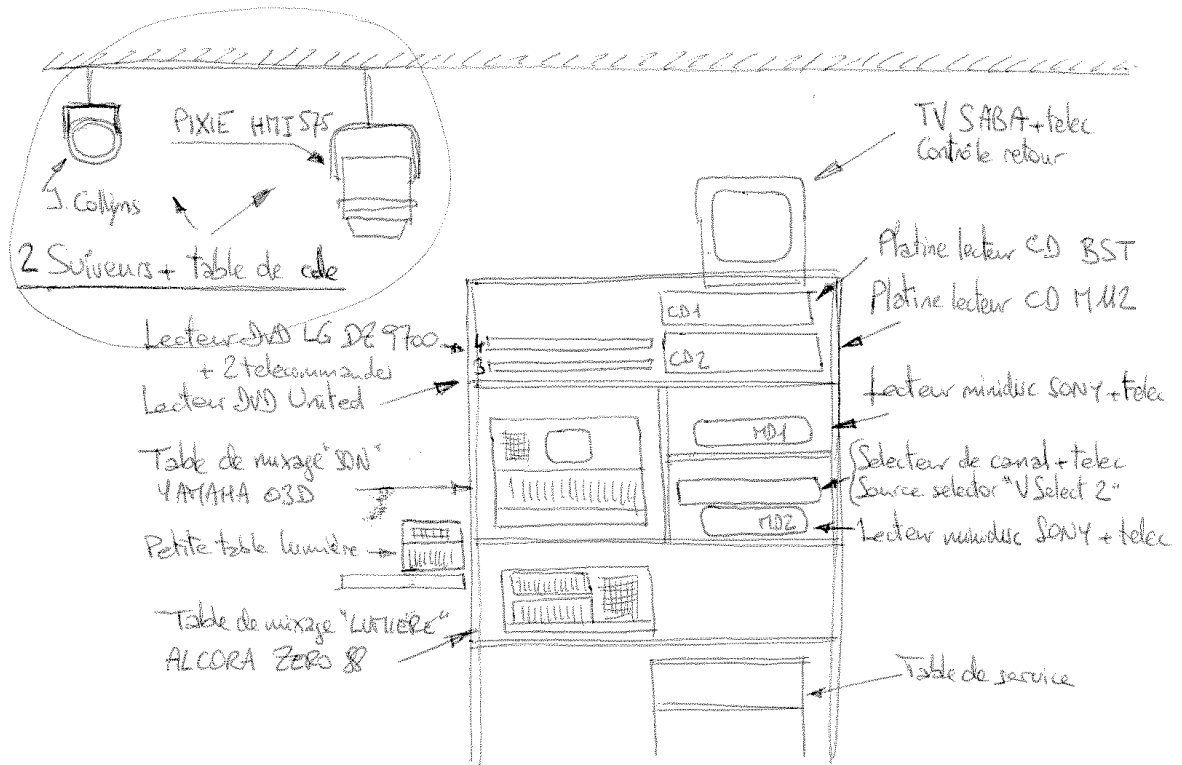 PIXIE HMI 575
1 Collyns
2 Suiveurs + table de cde
TV SABA + telec
Contrôle retour
Platine lecteur CD BST
Platine lecteur CD M112
CD1
CD2
Lecteur DVD LG DZ 9700
+ 2 telecommandes
Lecteur DVD United
4
3
Lecteur minidisc SONY + telec
MD1
Table de mixage "SON"
YAMAHA 03D
Selecteur de canal + telec
Source selector "V Select 2"
MD2
1 Lecteur minidisc SONY + telec
Petite table lumière
Table de mixage "LUMIÈRE"
ALCORA
Table de service